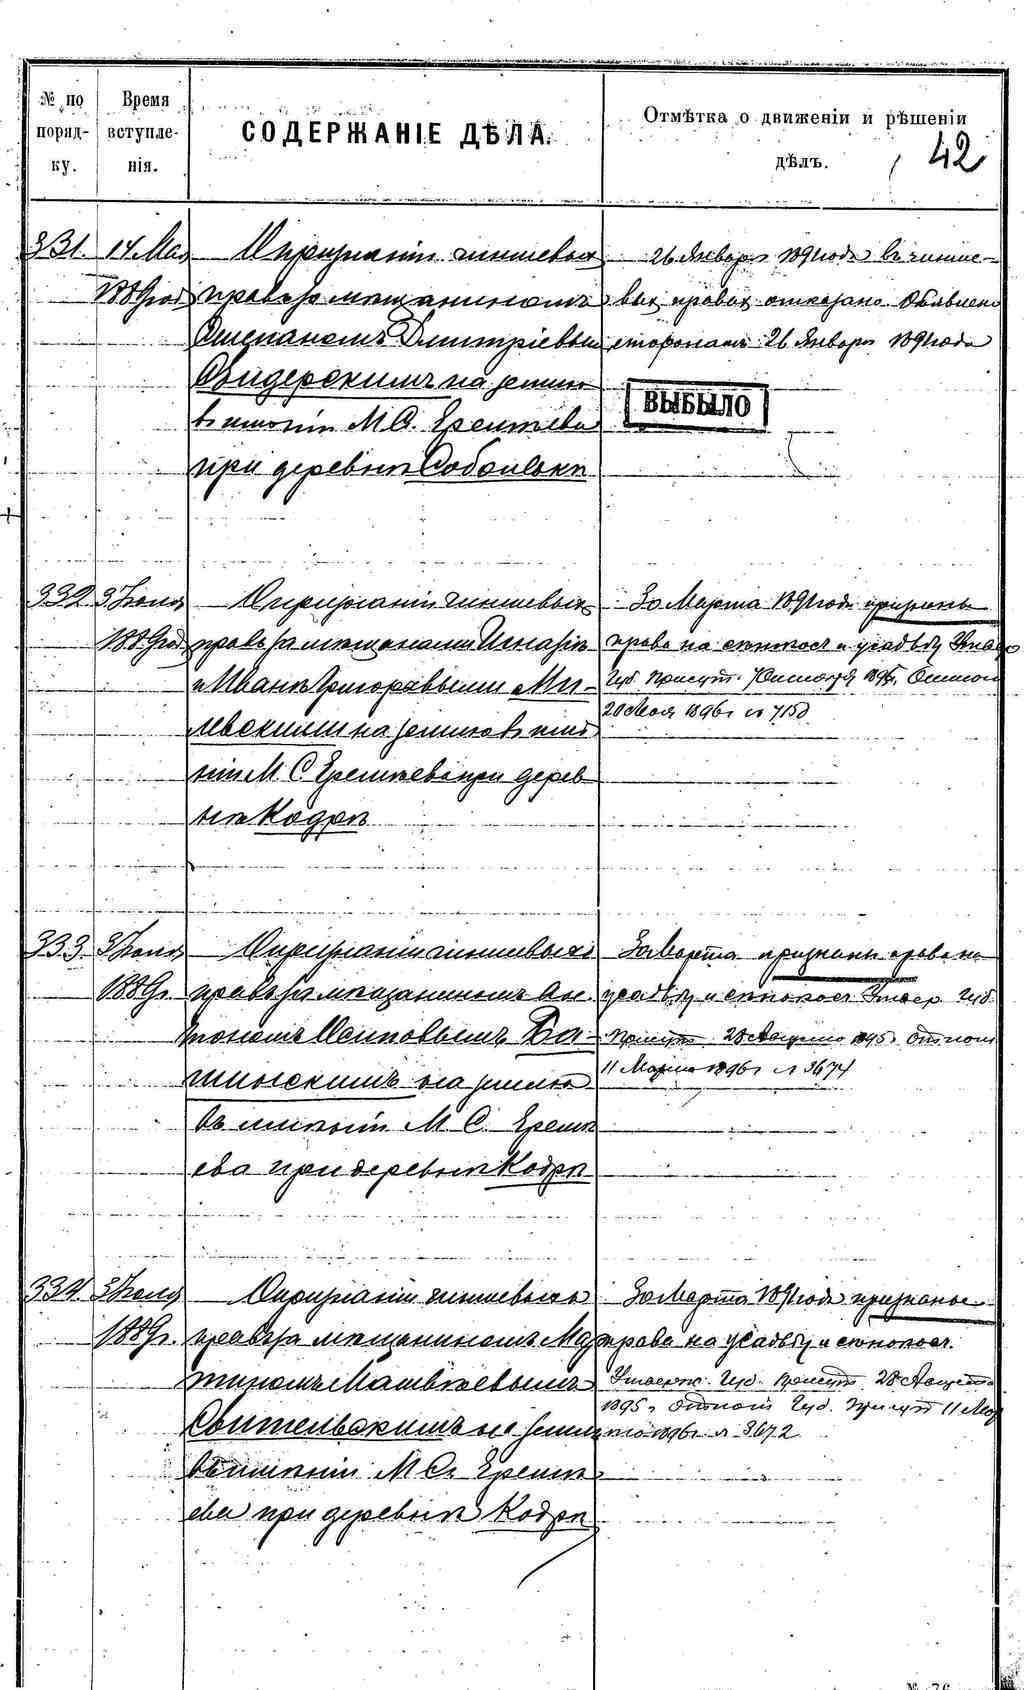 № по поряд-ку.
Время вступле-нія.
СОДЕРЖАНІЕ ДѢЛА.
Отмѣтка о движеніи и рѣшеніи
дѣлъ.
42
331.
14 Мая
1889 год
О признаніи чиншевыхъ
правъ за мѣщаниномъ
Степаномъ Дмитріевым
Свидерскимъ на землю
въ имѣніи М. С. Еремѣева
при деревнѣ
26 Января 1891 года въ чинше-
выхъ правахъ отказано Объявлено
сторонамъ 26 Января 1891 года
ВЫБЫЛО
332.
3 Іюня
1889 год
О признаніи чиншевыхъ
правъ за мѣщанами Игнатіемъ
и Иваномъ Григорьевыми
на землю въ имѣ-
ніи М. С. Еремѣева при дерев-
нѣ Кодрѣ
30 Марта 1891 года признаны
права на сѣнокосъ и усадьбу
Губ. Присут. 1895 г.
20 Мая 1896 г. № 7150
333.
3 Іюня
1889 г.
О признаніи чиншевыхъ
правъ за мѣщаниномъ Ан-
тономъ Осиповымъ
на землю
въ имѣніи М. С. Еремѣ-
ева при деревнѣ Кодрѣ
30 Марта признаны права на
усадьбу и сѣнокосъ Утвер. Губ.
Присут 28 Августа 1895 г.
11 Марта 1896 г. № 3674
334.
3 Іюня
1889 г.
О признаніи чиншевыхъ
правъ за мѣщаниномъ Мар-
тиномъ Матвѣевымъ
Свительскимъ на землю
въ имѣніи М. С. Еремѣ-
ева при деревнѣ Кодрѣ
30 Марта 1891 года признаны
права на усадьбу и сѣнокосъ.
Утверж. Губ. Присут. 28 Августа
1895 г. Губ. Присут 11 Мар
та 1896 г. № 3672